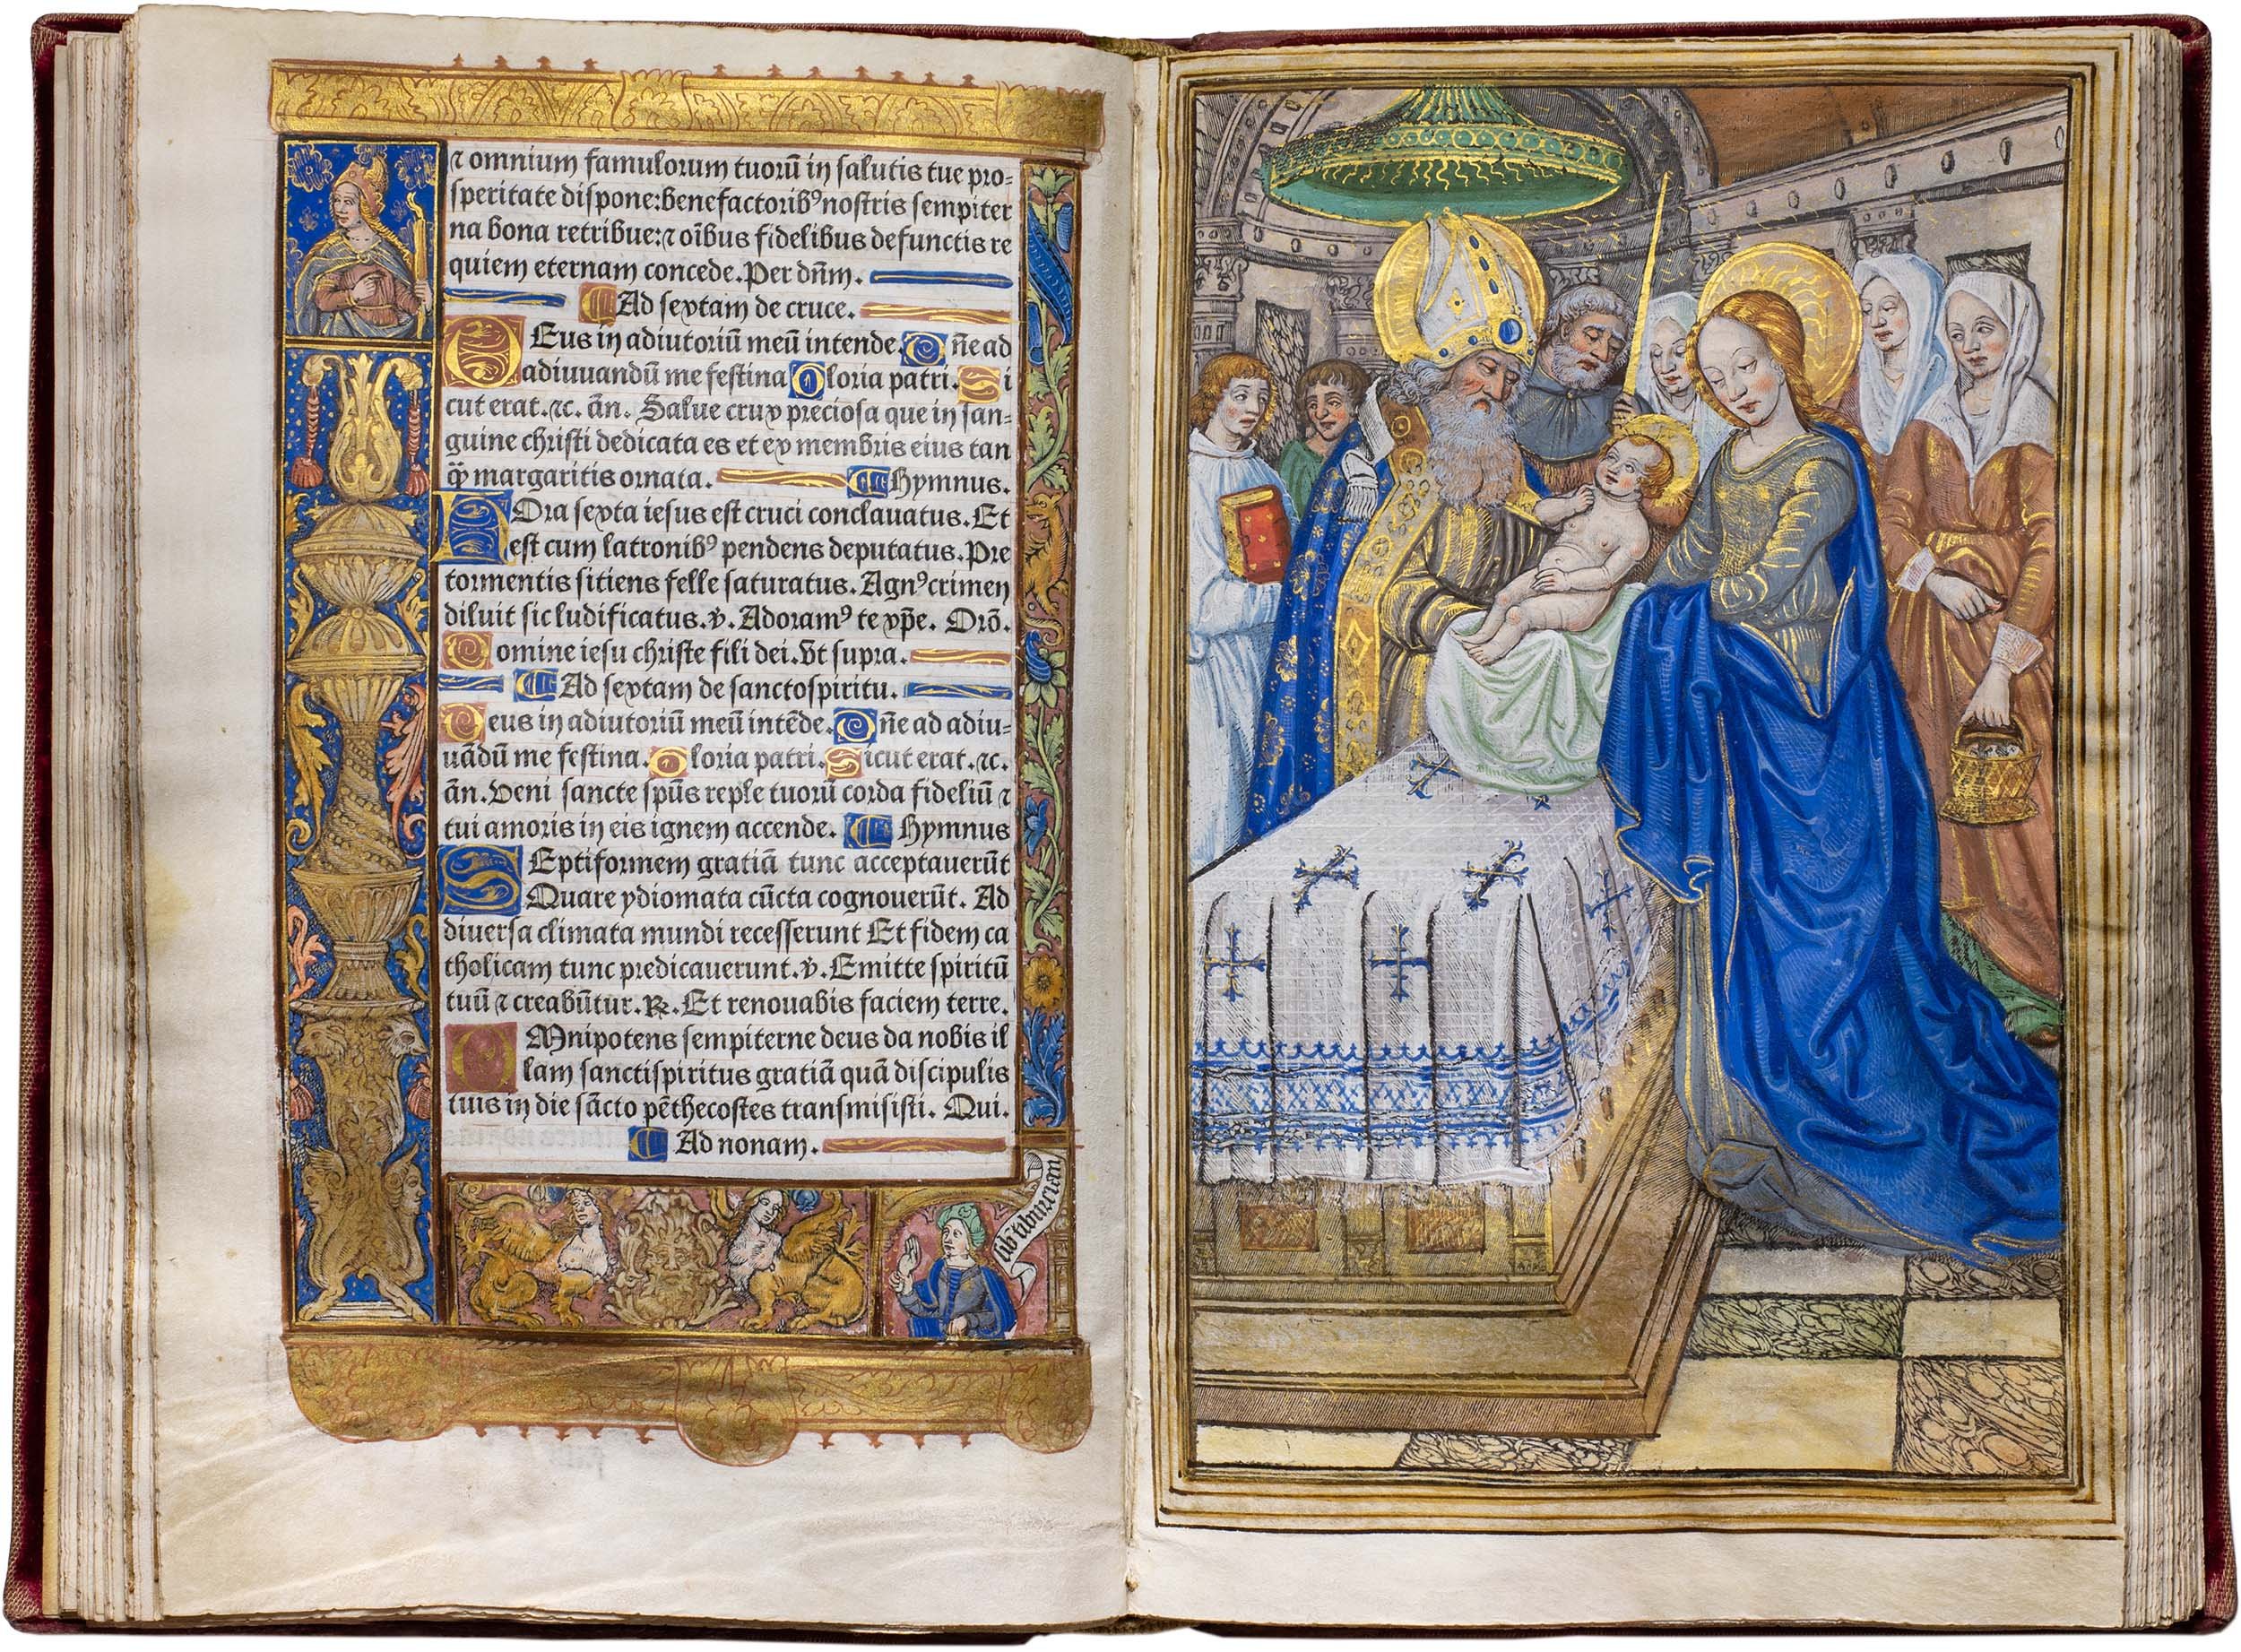 ⁊ omnium famulorum tuorū in salutis tue pro=
speritate dispone:benefactorib⁹ nostris sempiter
na bona retribue:⁊ oībus fidelibus defunctis re
quiem eternam concede.Per dn̄m.
Ad sextam de cruce.
DEus in adiutoriū meū intende. Dn̄e ad
adiuuandū me festina Gloria patri. Si
cut erat.⁊c. añ. Salue crux preciosa que in san=
guine christi dedicata es et ex membris eius tan
q̈ȝ margaritis ornata. Hymnus.
HOra sexta iesus est cruci conclauatus. Et
est cum latronib⁹ pendens deputatus. Pre
tormentis sitiens felle saturatus. Agn⁹ crimen
diluit sic ludificatus. ℣. Adoram⁹ te xp̄e. Orō.
Domine iesu christe fili dei. Vt supra.
Ad sextam de sanctospiritu.
Deus in adiutoriū meū intēde. Dn̄e ad adiu=
uādū me festina. Gloria patri. Sicut erat. ⁊c.
añ. Veni sancte sp̄us reple tuorū corda fideliū ⁊
tui amoris in eis ignem accende. Hymnus
SEptiformem gratiā tunc acceptauerūt
Quare ydiomata cūcta cognouerūt. Ad
diuersa climata mundi recesserunt Et fidem ca
tholicam tunc predicauerunt. ℣. Emitte spiritū
tuū ⁊ creabūtur. ℟. Et renouabis faciem terre.
OMnipotens sempiterne deus da nobis il
lam sanctispiritus gratiā quā discipulis
tuis in die sācto pēthecostes transmisisti. Qui.
Ad nonam.
sib tiburcian